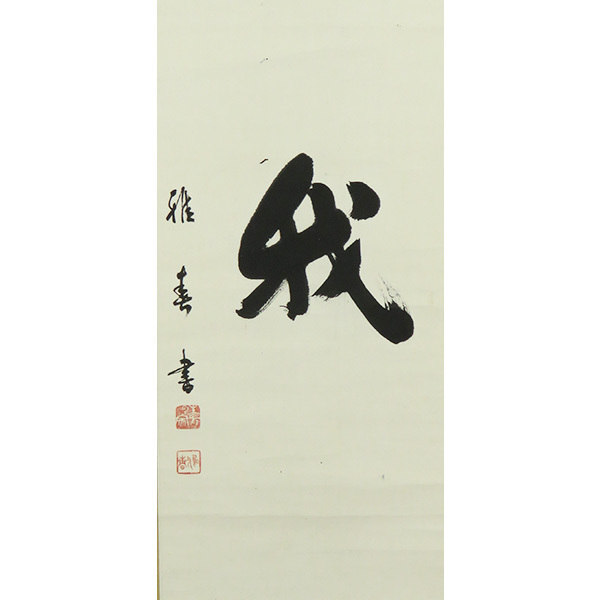 我
雅春書